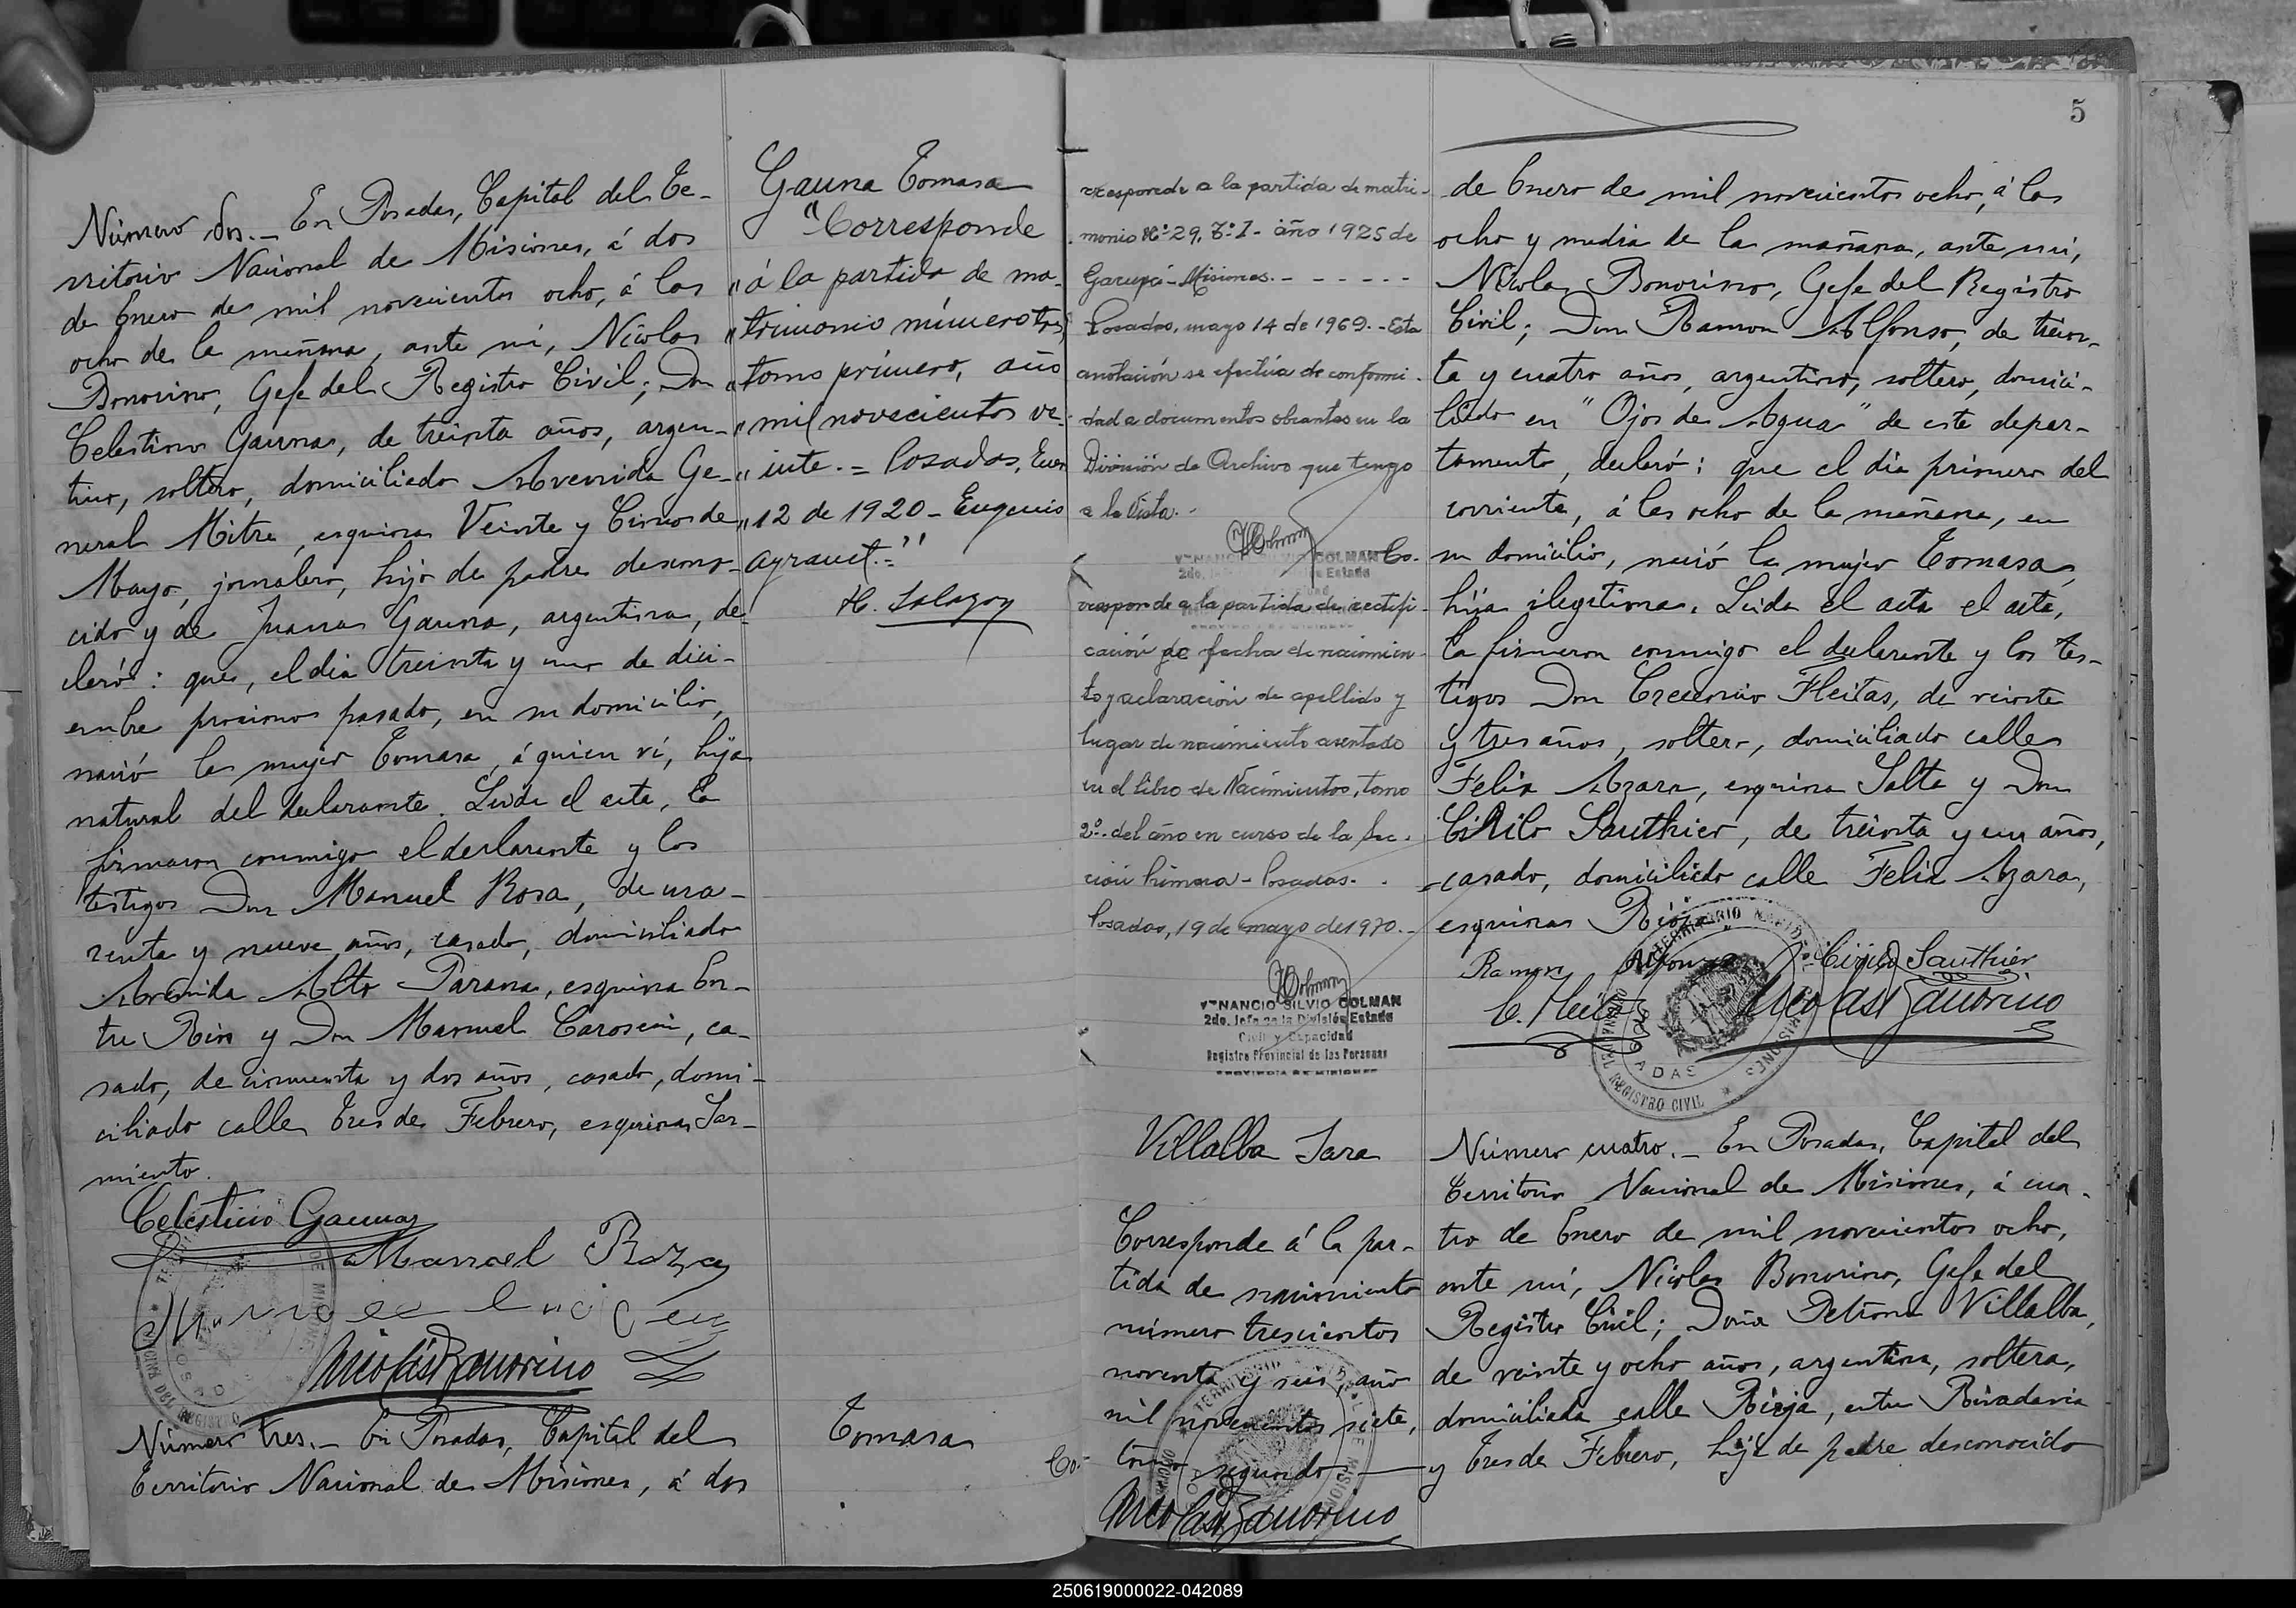 Número dos.- En Posadas, Capital del Te-
rritorio Nacional de Misiones, á dos
de Enero de mil novecientos ocho, á las
ocho de la mañana, ante mí, Nicolas
Bonorino, Gefe del Registro Civil; Don
Celestino Gauna, de treinta años, argen-
tino, soltero, domiciliado Avenida Ge-
neral Mitre, esquina Veinte y Cinco de
Mayo, jornalero, hijo de padre descono-
cido y de Juana Gauna, argentina, de-
claró: que, el dia treinta y uno de dici-
embre procsimo pasado, en su domicilio,
nació la mujer Tomasa, á quien ví, hija
natural del declarante. Leida el acta, la
firmaron conmigo el declarante y los
testigos Don Manuel Rosa, de cua-
renta y nueve años, casado, domiciliado
Avenida Alto Parana, esquina En-
tre Rios y Don Manuel Caroseni, ca-
sado, de cincuenta y dos años, casado, domi-
ciliado calle Tres de Febrero, esquina Sar-
miento.
Celestino Gauna
Manoel Roza
Nicolas Bonorino
Número tres.- En Posadas, Capital del
Territorio Nacional de Misiones, á dos
Gauna Tomasa
"Corresponde
"á la partida de ma-
"trimonio número tres,
"tomo primero, año
"mil novecientos ve-
"inte.= Posadas, Enero
"12 de 1920 - Eugenio
Ayraut.="
H. Salazar
Tomasa
Co-
rresponde a la partida de matri-
monio Nº 29, Tº I - año 1925 de
Garupá - Misiones. - - - - -
Posadas, mayo 14 de 1969. - Esta
anotación se efectúa de conformi-
dad a documentos obrantes en la
División de Archivo que tengo
a la vista.-
VENANCIO SILVIO COLMAN
Co-
rresponde a la partida de rectifi-
cación de fecha de nacimien-
to y aclaración de apellido y
lugar de nacimiento asentado
en el libro de Nacimientos, tomo
2º. del año en curso de la Sec-
ción Primera - Posadas. -
Posadas, 19 de mayo de 1970.-
VENANCIO SILVIO COLMAN
2do. Jefe de la División Estado
Civil y Capacidad
Registro Provincial de las Personas
PROVINCIA DE MISIONES
Villalba Sara
Corresponde á la par-
tida de nacimiento
número trescientos
noventa y seis, año
mil novecientos siete,
tomo segundo.
Nicolas Bonorino
5
de Enero de mil novecientos ocho, á las
ocho y media de la mañana, ante mí,
Nicolas Bonorino, Gefe del Registro
Civil; Don Ramon Alfonso, de trein-
ta y cuatro años, argentino, soltero, domici-
liado en "Ojos de Agua" de este depar-
tamento, declaró: que el dia primero del
corriente, á las ocho de la mañana, en
su domicilio, nació la mujer Tomasa,
hija ilegitima. Leida el acta el acta,
la firmaron conmigo el declarante y los tes-
tigos Don Cresencio Fleitas, de veinte
y tres años, soltero, domiciliado calle
Felix Azara, esquina Salta y Don
Cirilo Sauthier, de treinta y un años,
casado, domiciliado calle Felix Azara,
esquina Rioja.
Ramon Alfonzo
Cirilo Sauthier
C. Fleitas
Nicolas Bonorino
TERRITORIO NACIONAL DE MISIONES
OFICINA DEL REGISTRO CIVIL
POSADAS
Número cuatro.- En Posadas, Capital del
Territorio Nacional de Misiones, á cua-
tro de Enero de mil novecientos ocho,
ante mí, Nicolas Bonorino, Gefe del
Registro Civil; Doña Petrona Villalba,
de veinte y ocho años, argentina, soltera,
domiciliada calle Rioja, entre Rivadavia
y Tres de Febrero, hija de padre desconocido
250619000022-042089